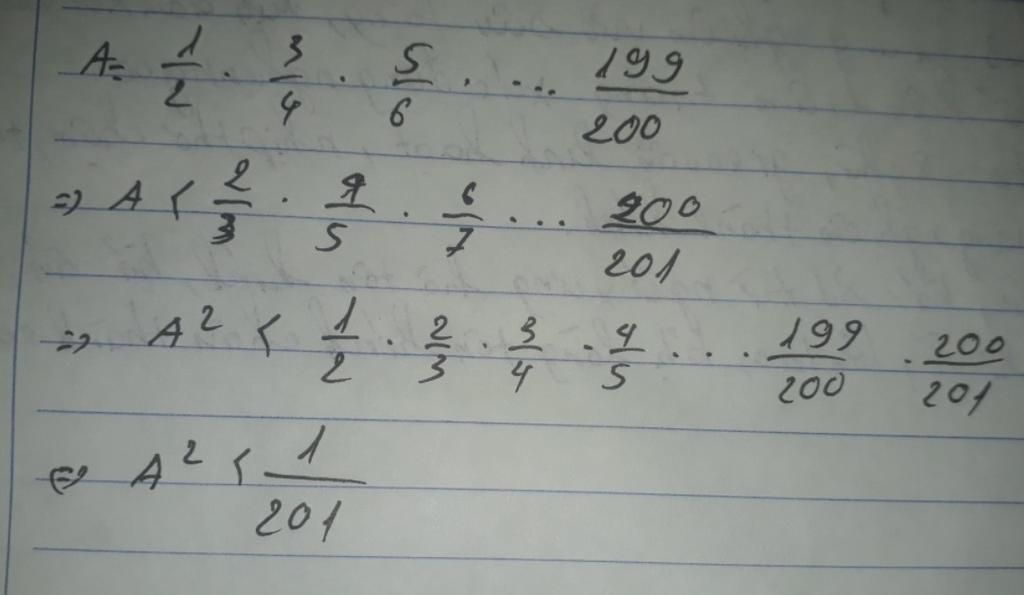 A = 1/2 . 3/4 . 5/6 . ... 199/200
=> A < 2/3 . 4/5 . 6/7 ... 200/201
=> A² < 1/2 . 2/3 . 3/4 . 4/5 ... 199/200 . 200/201
(=> A² < 1/201